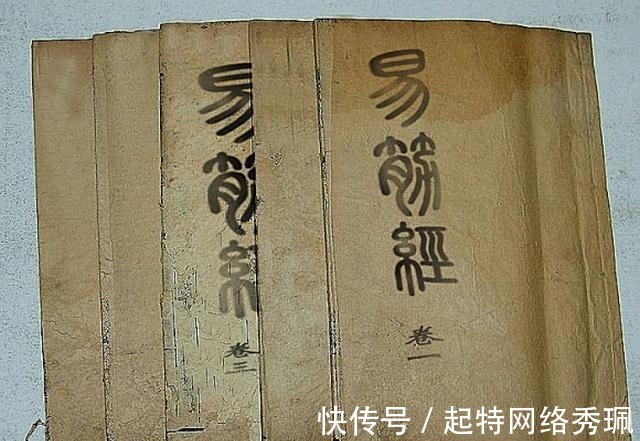 易筋經
卷一
易筋經
卷三
快传号 / 起特网络秀珮